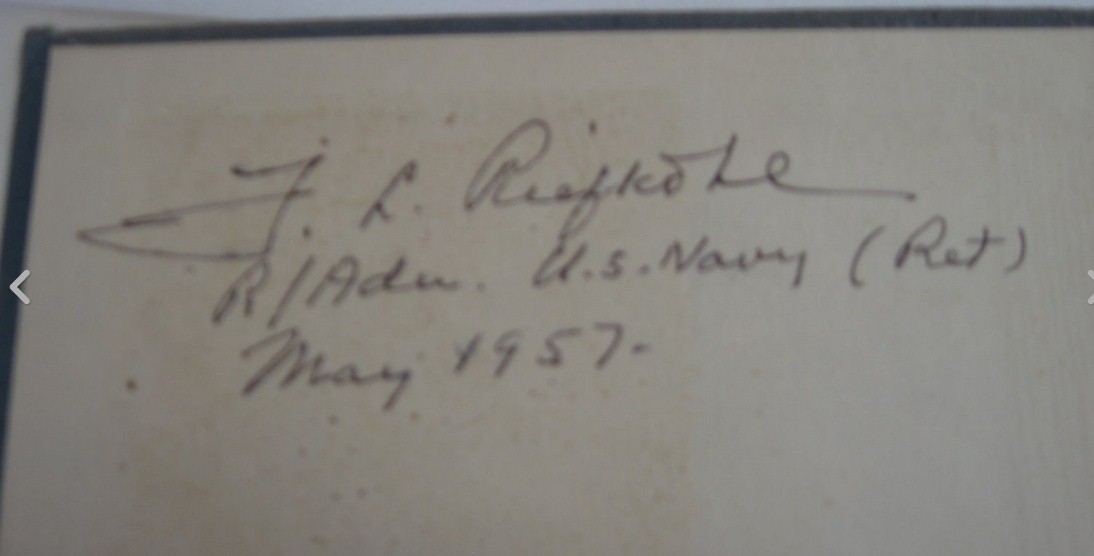 F. L. Riefkohl
R/Adm. U.S. Navy (Ret)
May 1957.